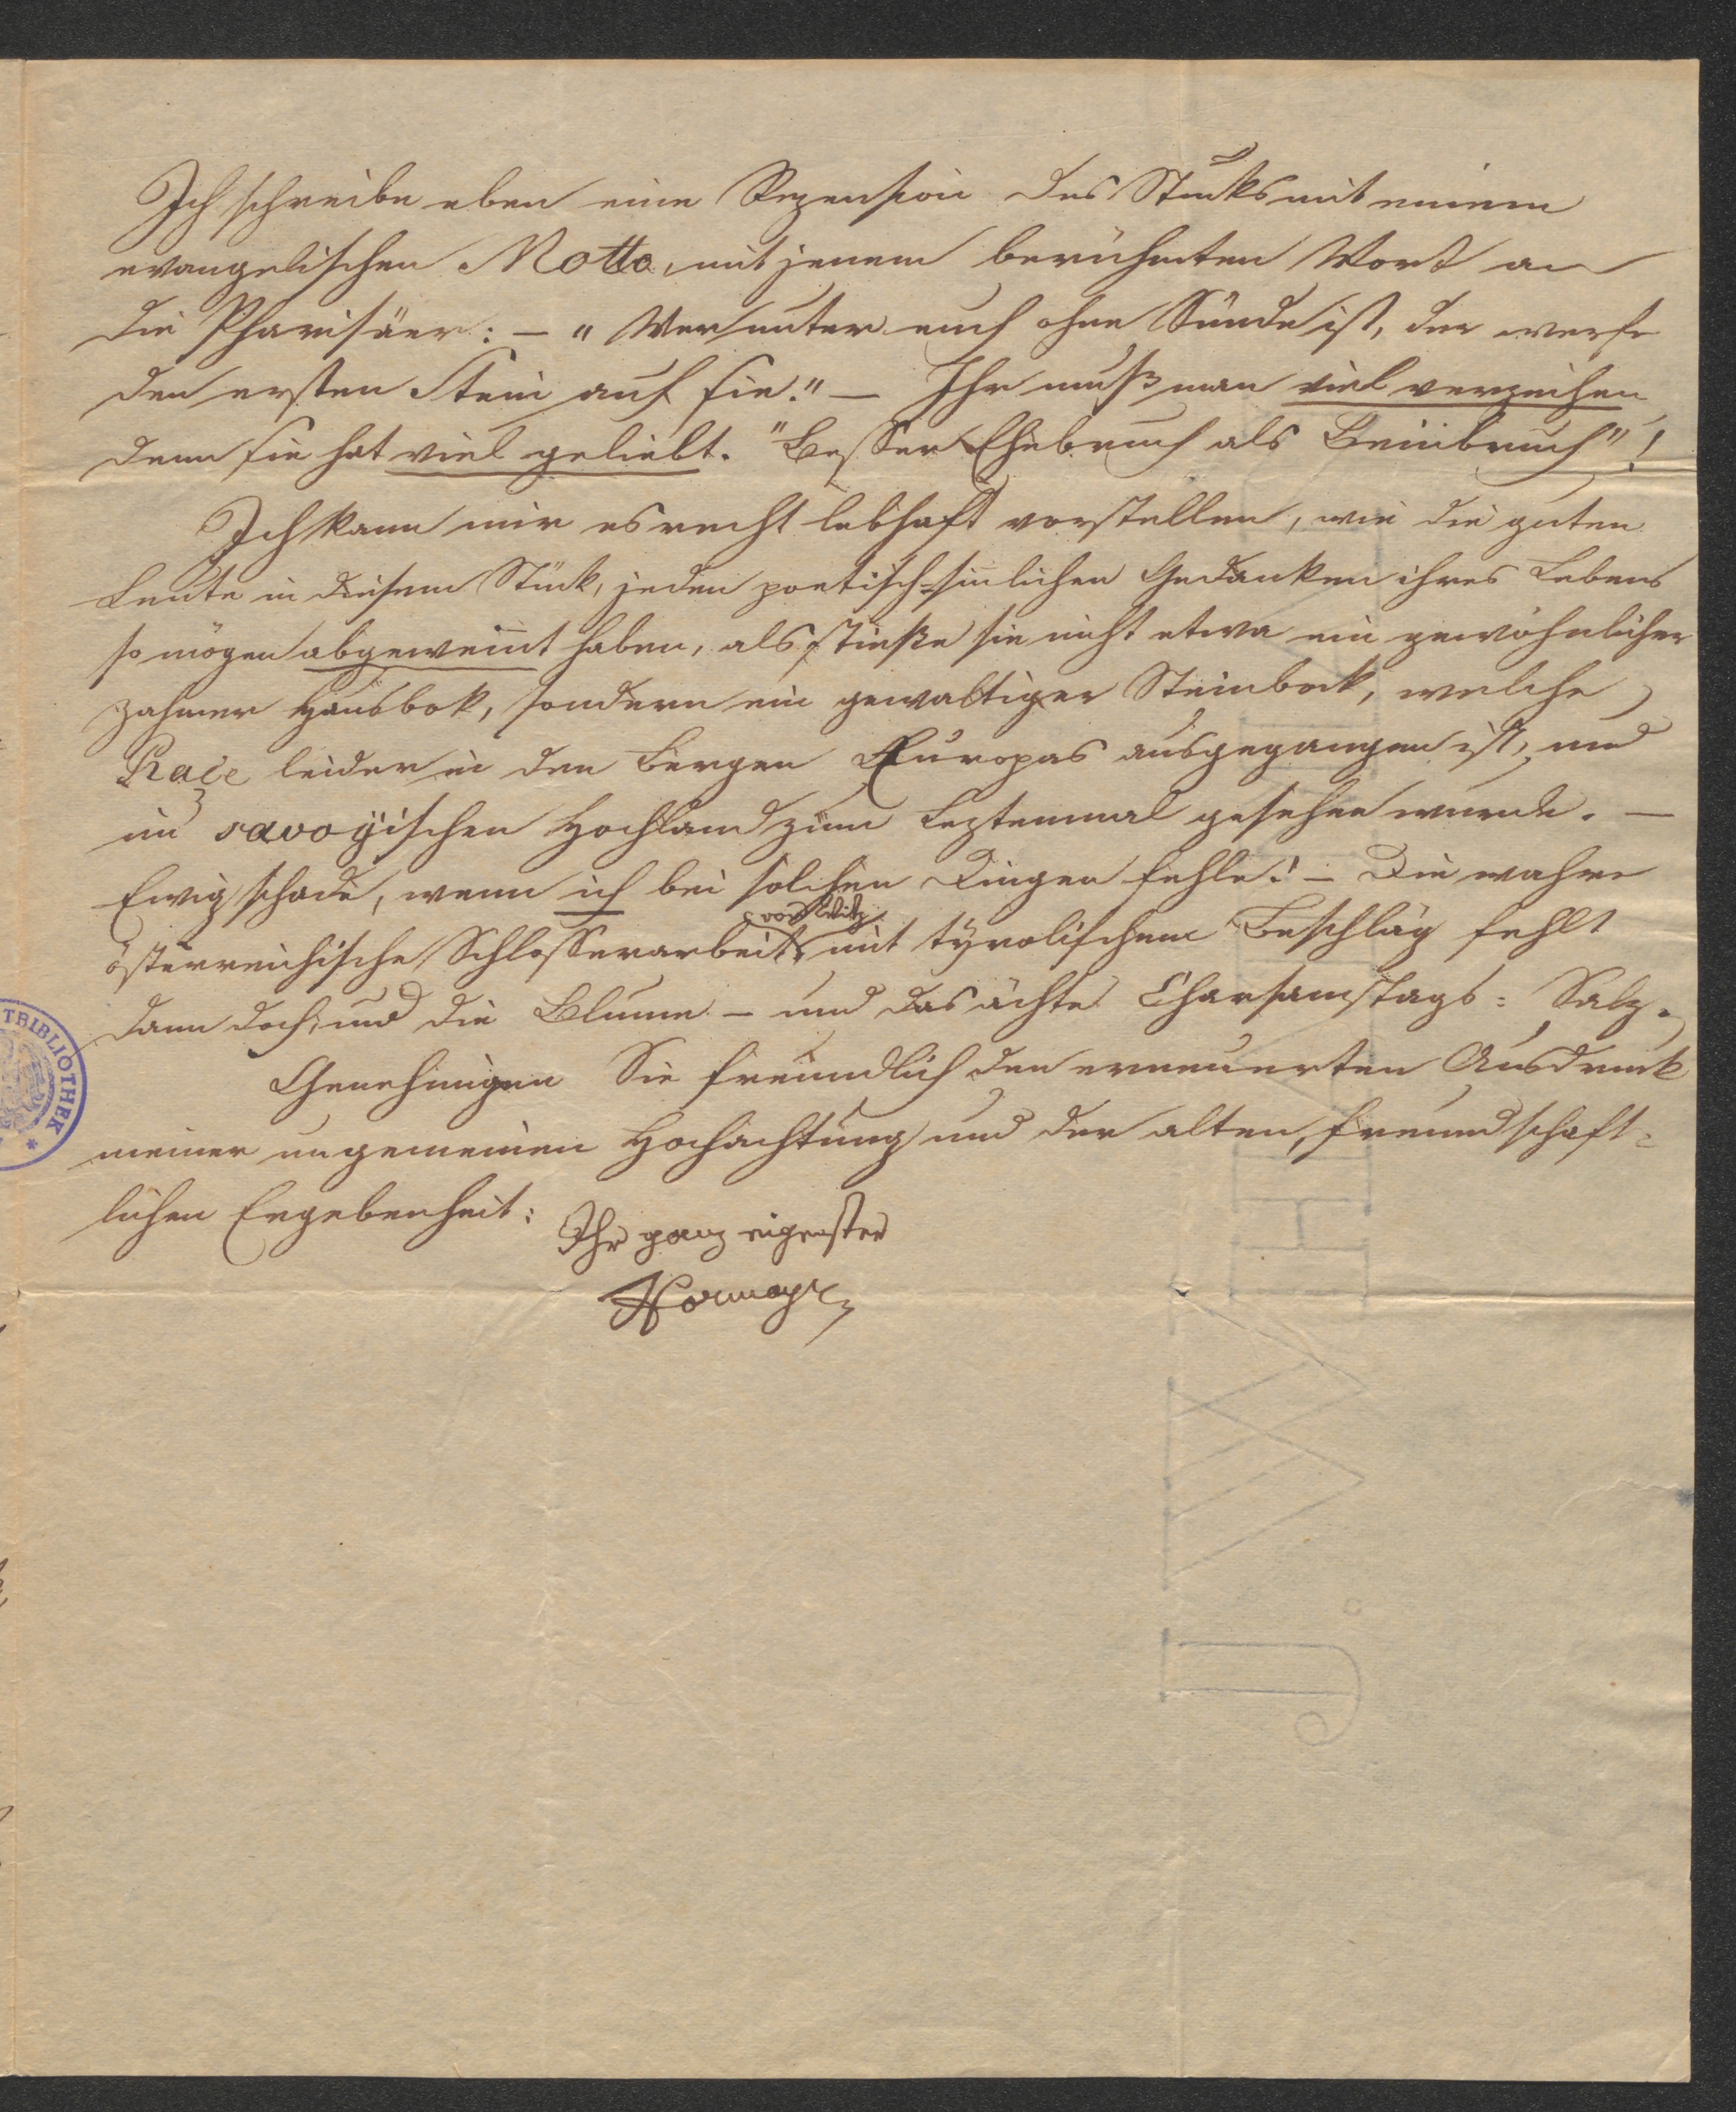 Ich schreibe eben eine Rezension des Stüks mit einem
evangelischen Motto, mit jenem berühmten Wort an
die Pharisäer: – „Wer unter euch ohne Sünde ist, der werfe
den ersten Stein auf sie." – Ihr muß man viel verzeihen
denn sie hat viel geliebt. "Besser Ehebruch als Beinbruch"!
Ich kann mir es recht lebhaft vorstellen, wie die guten
Leute in diesem Stük, jeden poetisch-sinlichen Gedanken ihres Lebens
so mögen abgeweint haben, als stieße sie nicht etwa ein gewöhnlicher
zahmer Hausbok, sondern ein gewaltiger Steinbock, welche
Race leider in den Bergen Europas ausgegangen ist, und
im savoyischen Hochland zum Leztenmal gesehen wurde. –
Ewig schade, wenn ich bei solchen Dingen fehle! – Die wahre
österreichische Schlosserarbeit mit tyrolischem Beschläg fehlt
dann doch, und die Blume – und das ächte Charsamstags: Salz.
Genehmigen Sie freundlich den erneuerten Ausdruck
meiner ungemeinen Hochachtung und der alten, freundschaft-
lichen Ergebenheit:
Ihr ganz eigenster
Hormayr
TBIBLIOTHEK
J WH